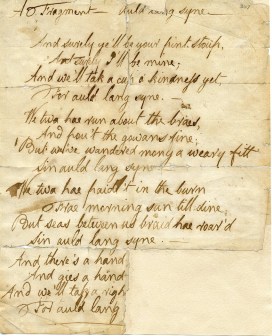 Fragment — Auld lang syne —
And surely ye'll be your pint stoup,
And surely I'll be mine;
And we'll tak a cup o kindness yet
For auld lang syne. —
We twa hae run about the braes,
And pou't the gowans fine;
But we've wandered mony a weary fitt
Sin auld lang syne —
We twa hae paidl't in the burn
Frae morning sun till dine;
But seas between us braid hae roar'd
Sin auld lang syne. —
And there's a hand
And gies a hand
And we'll tak a righ
For auld lang